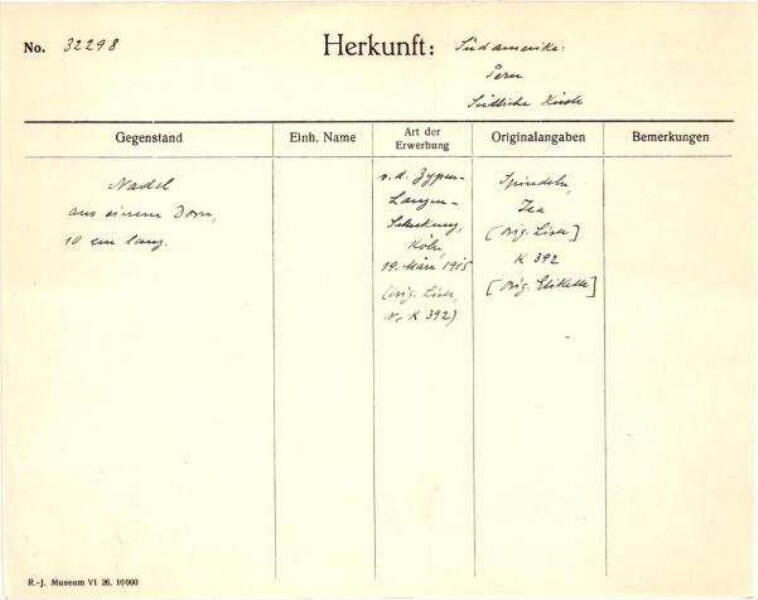 No. 32298
Herkunft: Südamerika.
Peru
Südliche Küste
Gegenstand
Einh. Name
Art der
Erwerbung
Originalangaben
Bemerkungen
Nadel
aus einem Dorn,
10 cm lang.
v. d. Zypen-
Langen-
Schenkung,
Köln,
19. März 1915
(Orig. Liste,
Nr K 392)
Spindeln,
Ica
[Orig. Liste]
K 392
[Orig. Etikette]
R.-J. Museum VI 26. 10000